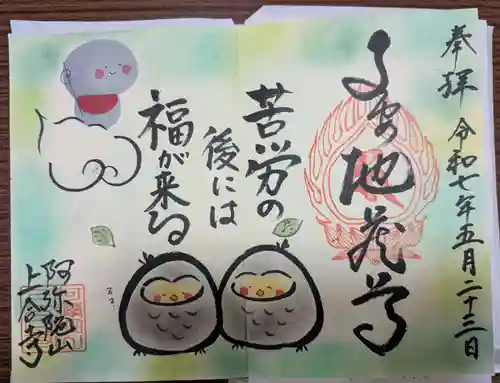 奉拝 令和七年五月二十三日
地蔵尊
苦労の
後には
福が来る
阿弥陀山
上合寺